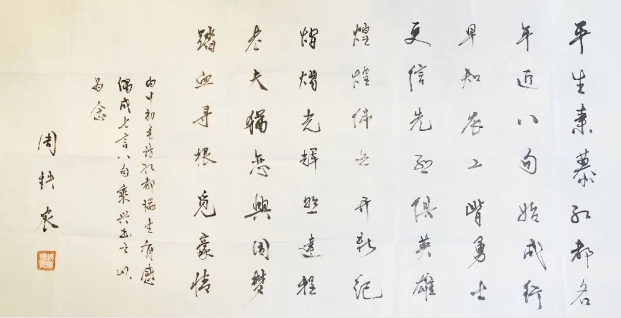 平生素慕红都名
年近八旬始成行
早知农工皆勇士
更信先烈俱英雄
煌煌伟业开新纪
熠熠光辉照远程
老夫犹恋興国梦
踏血寻根觅豪情
初访红都瑞金有感
偶成七言八句乘兴书之以
为念
周